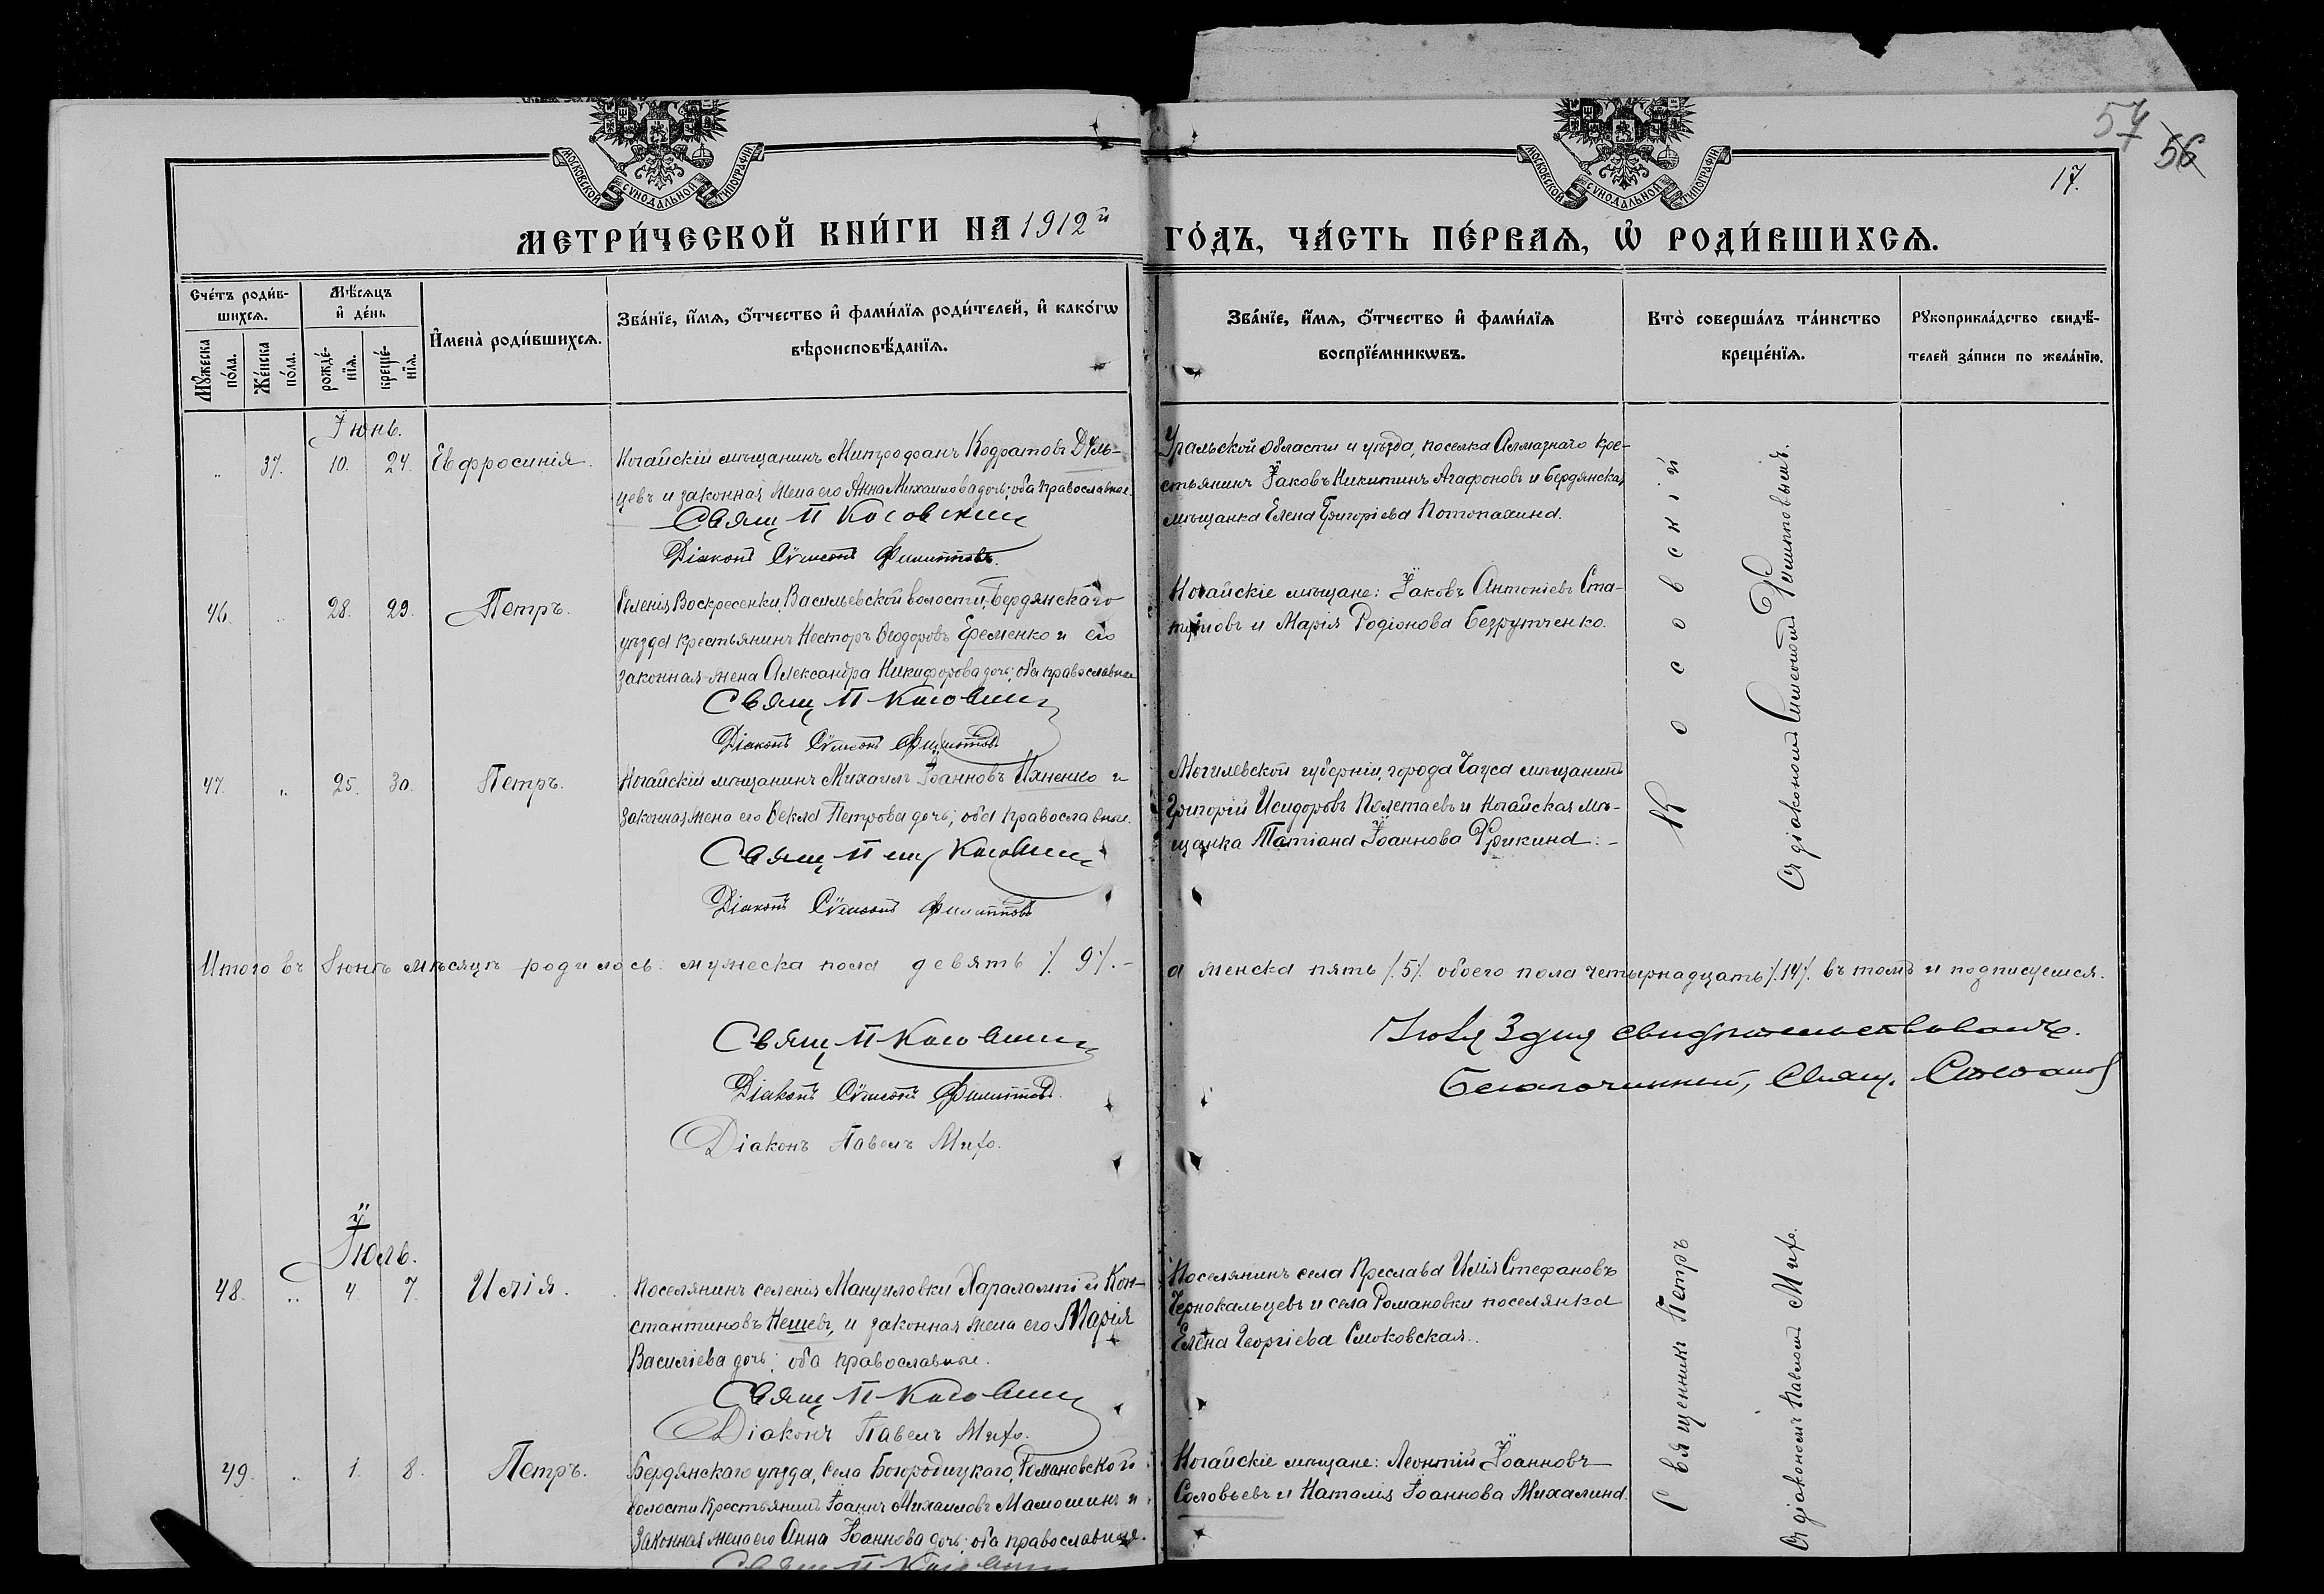 57
56
17.
МОСКОВСКОЙ СУНОДАЛЬНОЙ ТИПОГРАФІИ
МОСКОВСКОЙ СУНОДАЛЬНОЙ ТИПОГРАФІИ
МЕТРИ́ЧЕСКОЙ КНИ́ГИ НА 1912й
ГО́ДЪ, ЧА́СТЬ ПЕ́РВАѦ, Ѡ҆ РОДИ́ВШИХСѦ.
Сче́тъ роди́в-
шихсѧ.
Мѣ́сѧцъ
и҆ де́нь
И҆мена̀ роди́вшихсѧ.
Зва́нїе, и҆́мѧ, ѻ҆́тчество и҆ фами́лїѧ роди́телей, и҆ како́гѡ
вѣроисповѣ́данїѧ.
Мꙋ́жеска
по́ла.
Же́нска
по́ла.
рожде́-
нїѧ.
креще́-
нїѧ.
Зва́нїе, и҆́мѧ, ѻ҆́тчество и҆ фами́лїѧ
воспрїе́мникѡвъ.
Кто̀ соверша́лъ та́инство
креще́нїѧ.
Рꙋкоприкла́дство свидѣ́-
телей за́писи по жела́нїю.
Іюнь.
„ 37. 10. 24. Евфросинія.
Ногайскій мѣщанинъ Митрофанъ Кодратовъ Дуль-
цевъ и законная жена его Анна Михаилова дочь; оба православные.
Свящ П Косовскій
Діаконъ Сѵмеонъ Филипповъ.
Уральской области и уѣзда, поселка Алмазнаго кре-
стьянинъ Іаковъ Никитинъ Агафоновъ и Бердянская
мѣщанка Елена Григоріева Потопахина.
46. „ 28. 29. Петръ.
Селенія Воскресенки, Васильевской волости, Бердянскаго
уѣзда крестьянинъ Несторъ Ѳеодоровъ Еременко и его
законная жена Александра Никифорова дочь; оба православные
Свящ П Косовскій
Діаконъ Сѵмеонъ Филипповъ
Ногайскіе мѣщане: Іаковъ Антоніевъ
и Марія Родіонова Безрутченко.
47. „ 25. 30. Петръ.
Ногайскій мѣщанинъ Михаилъ Іоанновъ Ихненко и
законная жена его Ѳекла Петрова дочь; оба православные.
Свящ Косовскій
Діаконъ Сѵмеонъ Филипповъ
Могилевской губерніи, города Чауса мѣщанинъ
Григорій Исидоровъ Полетаевъ и Ногайская мѣ-
щанка Татіана Іоаннова
Косовскій
Съ діакономъ Симеономъ Филипповымъ.
Итого въ Іюнѣ мѣсяцѣ родилось: мужеска пола девять /. 9/. –
а женска пять /.5/. обоего пола четырнадцать /.14/. въ томъ и подписуемся.
Свящ П Косовскій
Діаконъ Сѵмеонъ Филипповъ.
Діаконъ Павелъ
Іюля 3 дня свидѣтельствовалъ.
Благочинный, Свящ.
Іюль.
48. „ 4. 7. Илія.
Поселянинъ селенія Мануиловки Харалампій Кон-
стантиновъ Нешевъ, и законная жена его Марія
Василіева дочь; оба православные.
Свящ П Косовскій
Діаконъ Павелъ
Поселянинъ села Преслава Илія Стефановъ
Чернокальцевъ и села Романовки поселянка
Елена Георгіева Смоковская.
49. „ 1. 8. Петръ.
Бердянскаго уѣзда, села Богородицкаго, Романовской
волости крестьянинъ Іоаннъ Михаиловъ Мамошинъ и
законная жена его Анна Іоаннова дочь; оба православные.
Ногайскіе мѣщане: Леонтій Іоанновъ
Соловьевъ и Наталія Іоаннова Михалина.
Священникъ Петръ
Съ діакономъ Павломъ